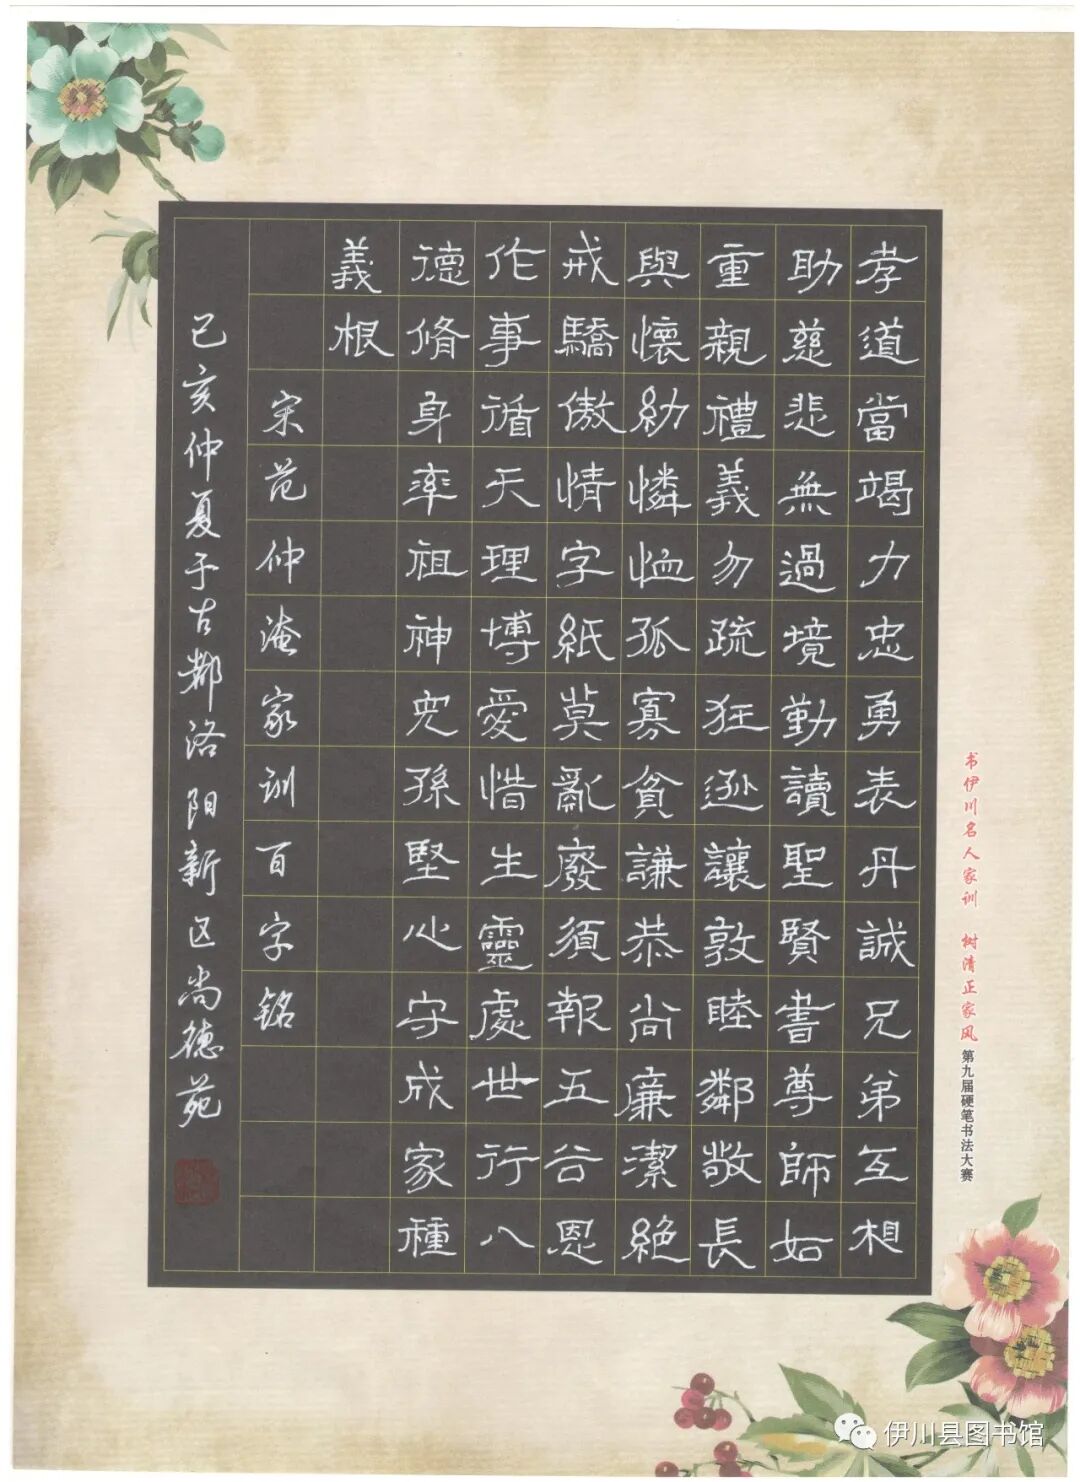 孝道當竭力忠勇表丹誠兄弟互相
助慈悲無過境勤讀聖賢書尊師如
重親禮義勿疏狂遜讓敦睦鄰敬長
與懷幼憐恤孤寡貧謙恭尚廉潔絕
戒驕傲情字紙莫亂廢須報五谷恩
作事循天理博愛惜生靈處世行八
德脩身率祖神兒孫堅心守成家種
義根
宋范仲淹家训百字铭
己亥仲夏于古都洛阳新区尚德苑
书伊川名人家训 树清正家风
第九届硬笔书法大赛
伊川县图书馆